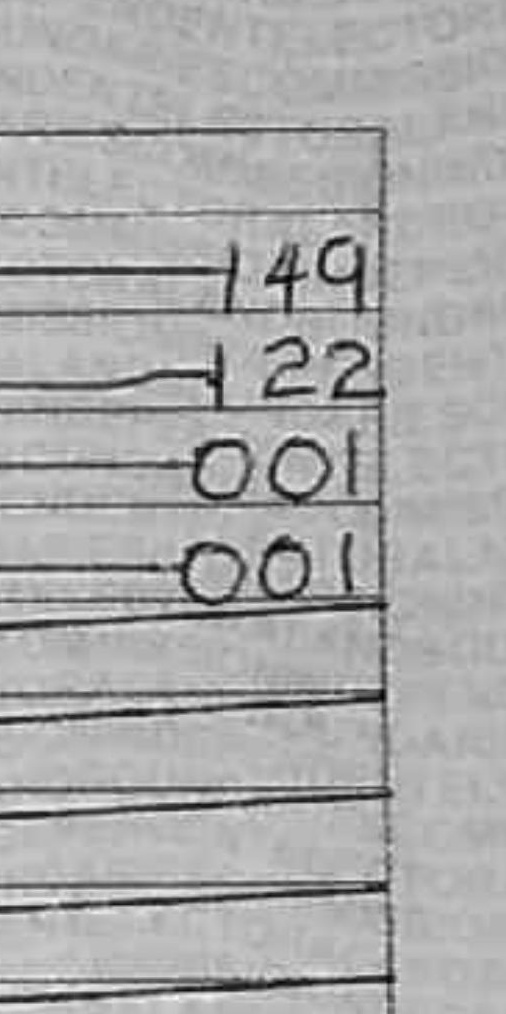 149
122
001
001